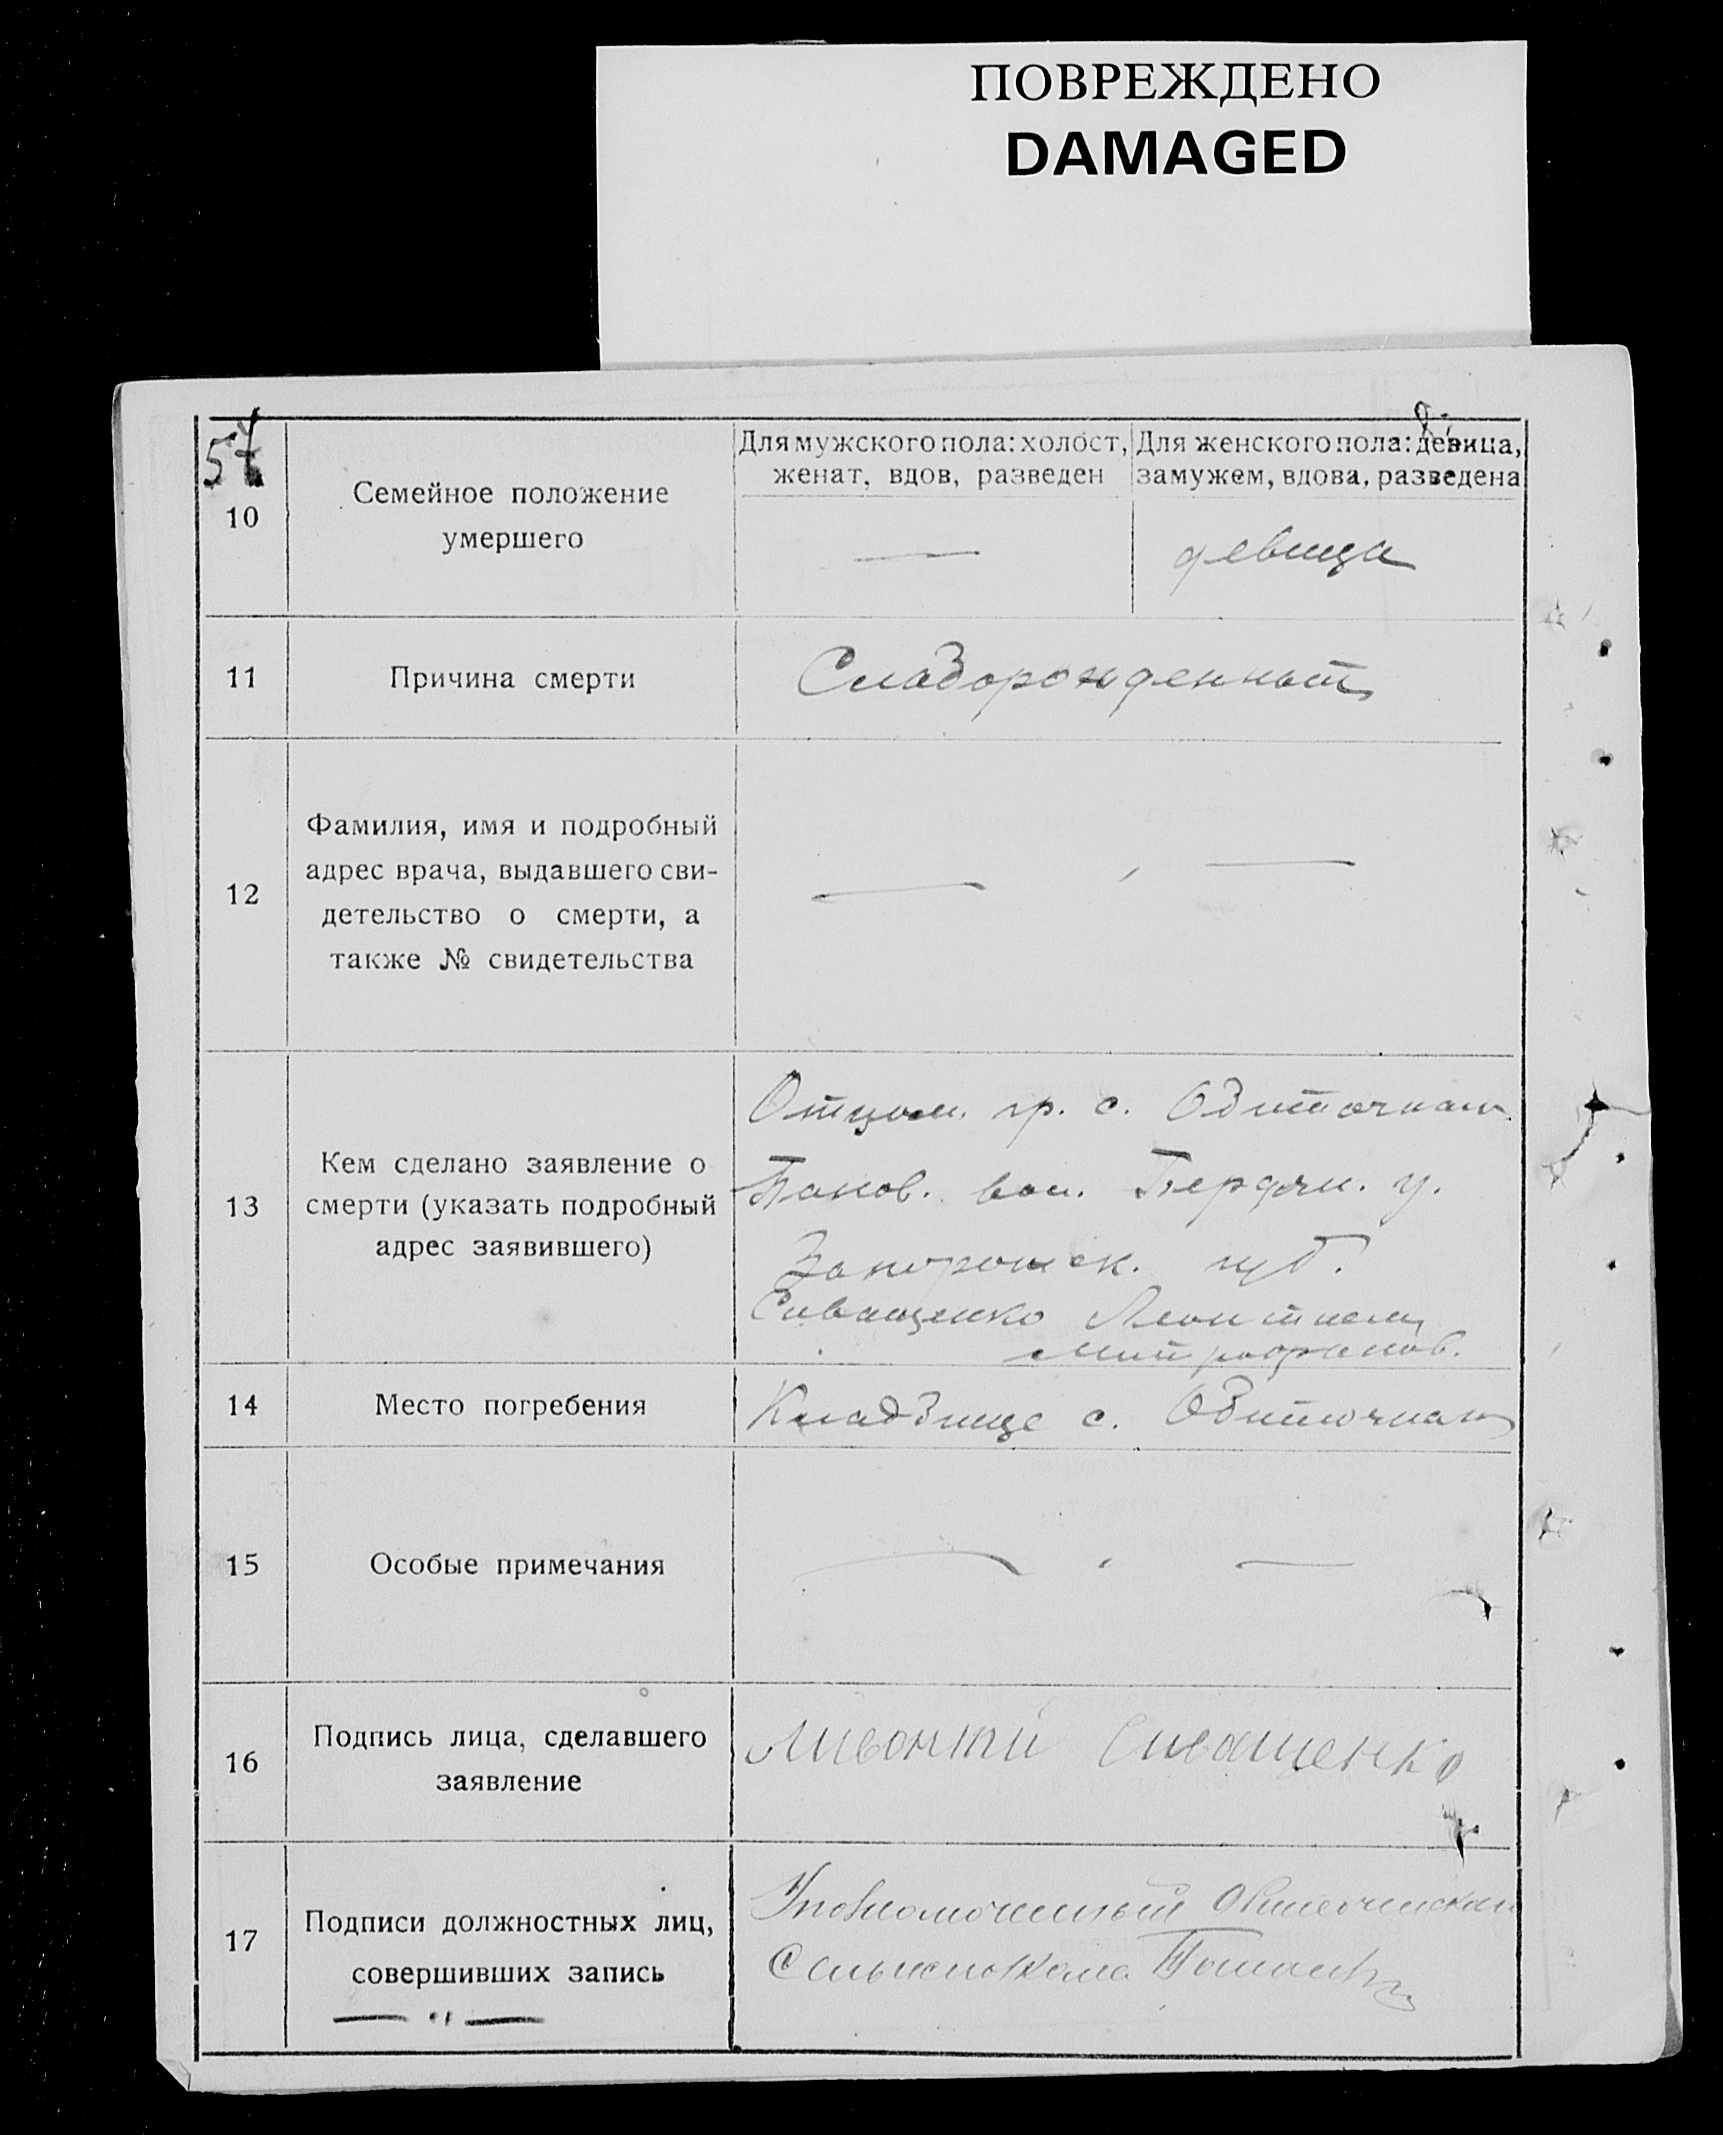 ПОВРЕЖДЕНО
DAMAGED
Для мужского пола: холост,
женат, вдов, разведен
Для женского пола: девица,
замужем, вдова, разведена
10
Семейное положение
умершего
девица
11
Причина смерти
Слаборожденный
12
Фамилия, имя и подробный
адрес врача, выдавшего сви-
детельство о смерти, а
также № свидетельства
13
Кем сделано заявление о
смерти (указать подробный
адрес заявившего)
Отцом гр. с. Обиточная
вол. Бердян. у.
Запорожск. губ.
Сиващенко Леонтием
Митрофанов.
14
Место погребения
Кладбище с. Обиточная
15
Особые примечания
16
Подпись лица, сделавшего
заявление
Ливонтий Сиващенко
17
Подписи должностных лиц,
совершивших запись
— " —
Уполномоченный
Сельисполкома